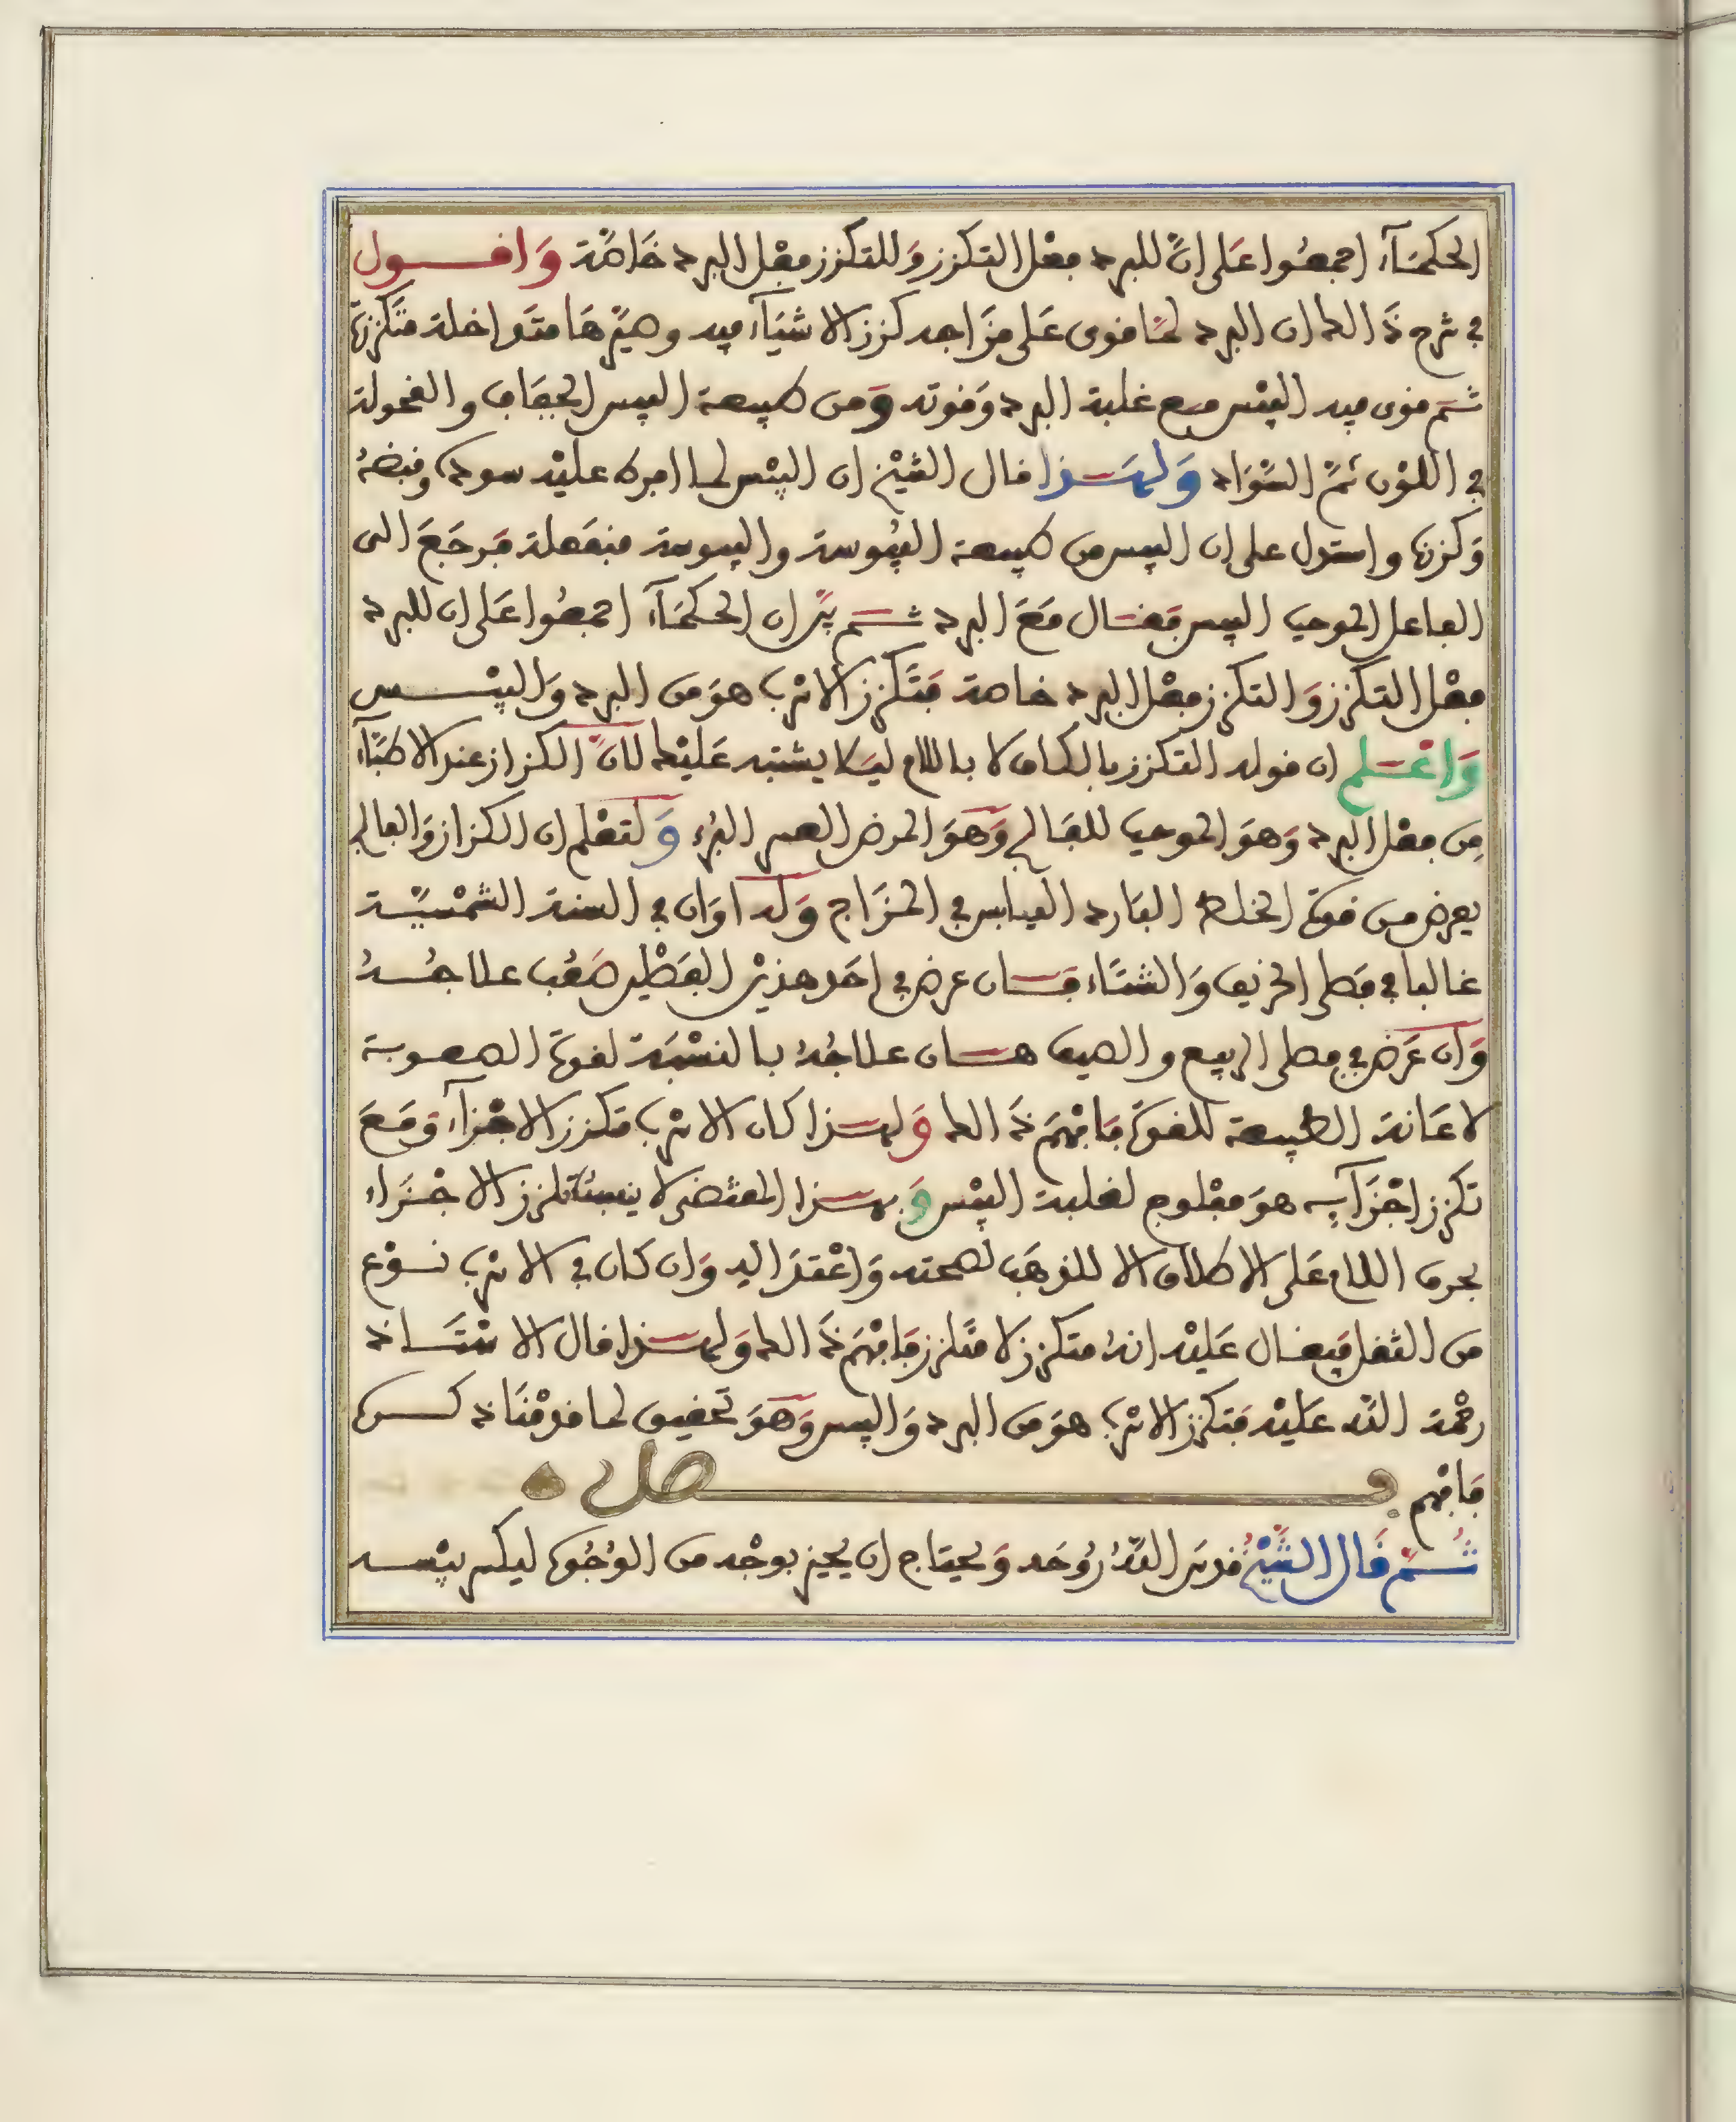 الحكمَآء اجمعُوا عَلى انَّ للبرد فعْل التكزز وَللتكزز فعْل البرد خَاصَّة وَاقـــول
في شرح ذَالك ان البرد لمَّا قوى عَلى مزَاجه كزز الاشيَآء فيه وصيَّرهَا متَداخلة متَكززة
ثـم قوى فيه اليبْس مـع غلبة البرد وَقوته وَمن طبيعة اليبس الجفَاف والقحولة
في اللوْن ثمَّ السَّوَاد وَلهـذا قال الشيْخ ان اليبْس لما افرط عليْه سوده وقبضهُ
وَكززه واستدل على ان اليبس من طبيعة اليبُوسة واليبوسة منفعلة فرجَعَ الى
الفاعل الموجب اليبس فقـال مَعَ البرد ثـم بيّن ان الحكمَآء اجمعُوا عَلى ان للبرد
فعْل التكزز وَالتكزز فعْل البرد خاصة فتَكزز الانرب هوَ من البرد وَاليبْــس
وَاعْـلم ان قوله التكزز بالكاف لا باللام ليَلا يشتبه عَليْك لانَّ الكزاز عند الاطبَّآء
مِن فعْل البرد وَهوَ الموجب للفَالج وَهوَ المرض العسر البُرء وَلتعْلم ان الكزاز وَالفالج
يعرض من قوة الخلط البَارد اليابس في المزَاج وَله اوَان في السنة الشمْسيَّـة
غالبا في فصْلى الخريف وَالشتَاء فـان عرض في احَد هذيْن الفصْلين صَعُب علاجُـهُ
وَان عَرَض في فصلى الربيع والصيف هـان علاجُهُ بالنسْبَة لقوة الصعوبة
لاعَانة الطبيعة للقوة فَافهَم ذَالك وَلهـذا كان الانرب متكزز الاجْزآء وَمَعَ
تكزز اجْزَآيه هوَ مفْلوج لغلبة اليبْس وَبهـذا المقتضى لا ينبئا تلزز الاجْـزَاء
بحرف اللام عَلى الاطلاق الا للذهَب لصحته وَاعْتدَاليه وَان كان في الانرب نـوْع
من الثقل فيقـال عَليْه انهُ متكزز لا متَلزز فَافهَم ذَالك وَلهـذا قال الاسْتَـاذ
رحْمة اللَّه عَليْه فتكزز الانرب هوَ من البرد وَاليبس وَهوَ تحقيق لما قدمْنَا ذكــره
فَافهم فـــصل
ثُـمَّ قَال الشَّيْخُ قدسَ اللَّهُ رُوحَه وَيحتاج ان يحيز بوجْه من الوُجُوه ليكسر يبْســه